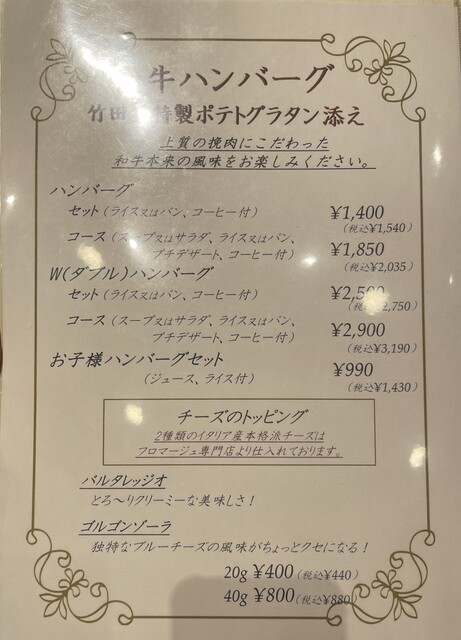 牛ハンバーグ
竹田 特製ポテトグラタン添え
上質の挽肉にこだわった
和牛本来の風味をお楽しみください。
ハンバーグ
セット(ライス又はパン、コーヒー付) ¥1,400
(税込¥1,540)
コース(スープ又はサラダ、ライス又はパン、 ¥1,850
プチデザート、コーヒー付) (税込¥2,035)
W(ダブル)ハンバーグ
セット(ライス又はパン、コーヒー付) ¥2,500
(税込¥2,750)
コース(スープ又はサラダ、ライス又はパン、 ¥2,900
プチデザート、コーヒー付) (税込¥3,190)
お子様ハンバーグセット ¥990
(ジュース、ライス付) (税込¥1,430)
チーズのトッピング
2種類のイタリア産本格派チーズは
フロマージュ専門店より仕入れております。
バルタレッジオ
とろ～りクリーミーな美味しさ!
ゴルゴンゾーラ
独特なブルーチーズの風味がちょっとクセになる!
20g ¥400(税込¥440)
40g ¥800(税込¥880)